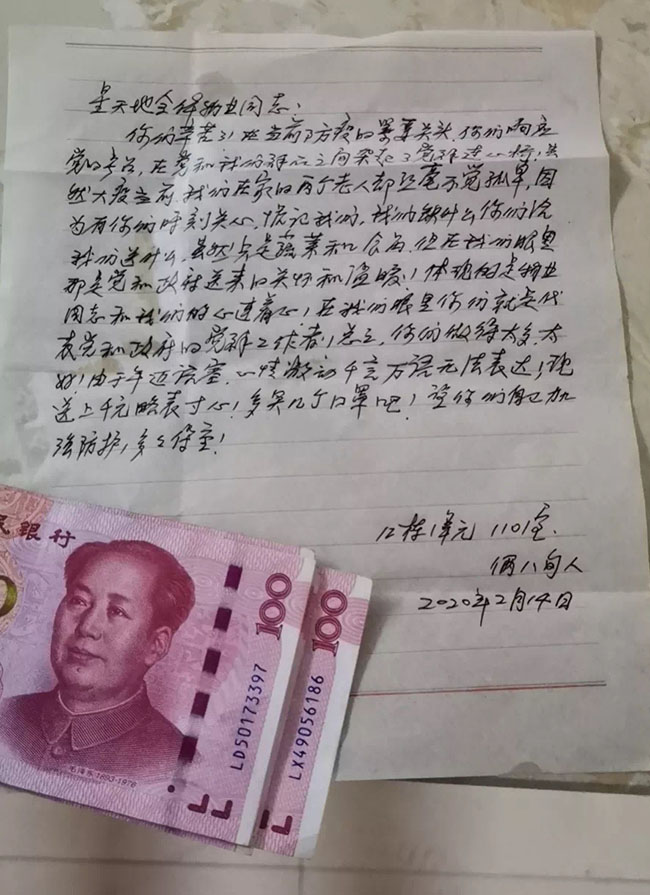 星天地全体物业同志：
你们辛苦了！在当前防疫的紧要关头，你们响应
党的号召，在党和我们群众之间架起了党群连心桥！虽
然大疫当前，我们在家的两个老人却丝毫不觉孤单，因
为有你们时刻关心，惦记我们，我们缺什么你们给
我们送什么，虽然只是蔬菜和食品，但在我们眼里
那是党和政府送来的关怀和温暖！体现的是物业
同志和我们的心连着心！在我们眼里你们就是代
表党和政府的党群工作者！总之，你们做得太多太
好！由于年迈语塞，心情激动千言万语无法表达！现
送上千元略表寸心！多买几个口罩吧！望你们自己加
强防护，多多保重！
12栋1单元 1101室
俩八旬人
2020年2月14日
民银行
100
100
LD50173397
LX49056186
毛泽东 1893-1976